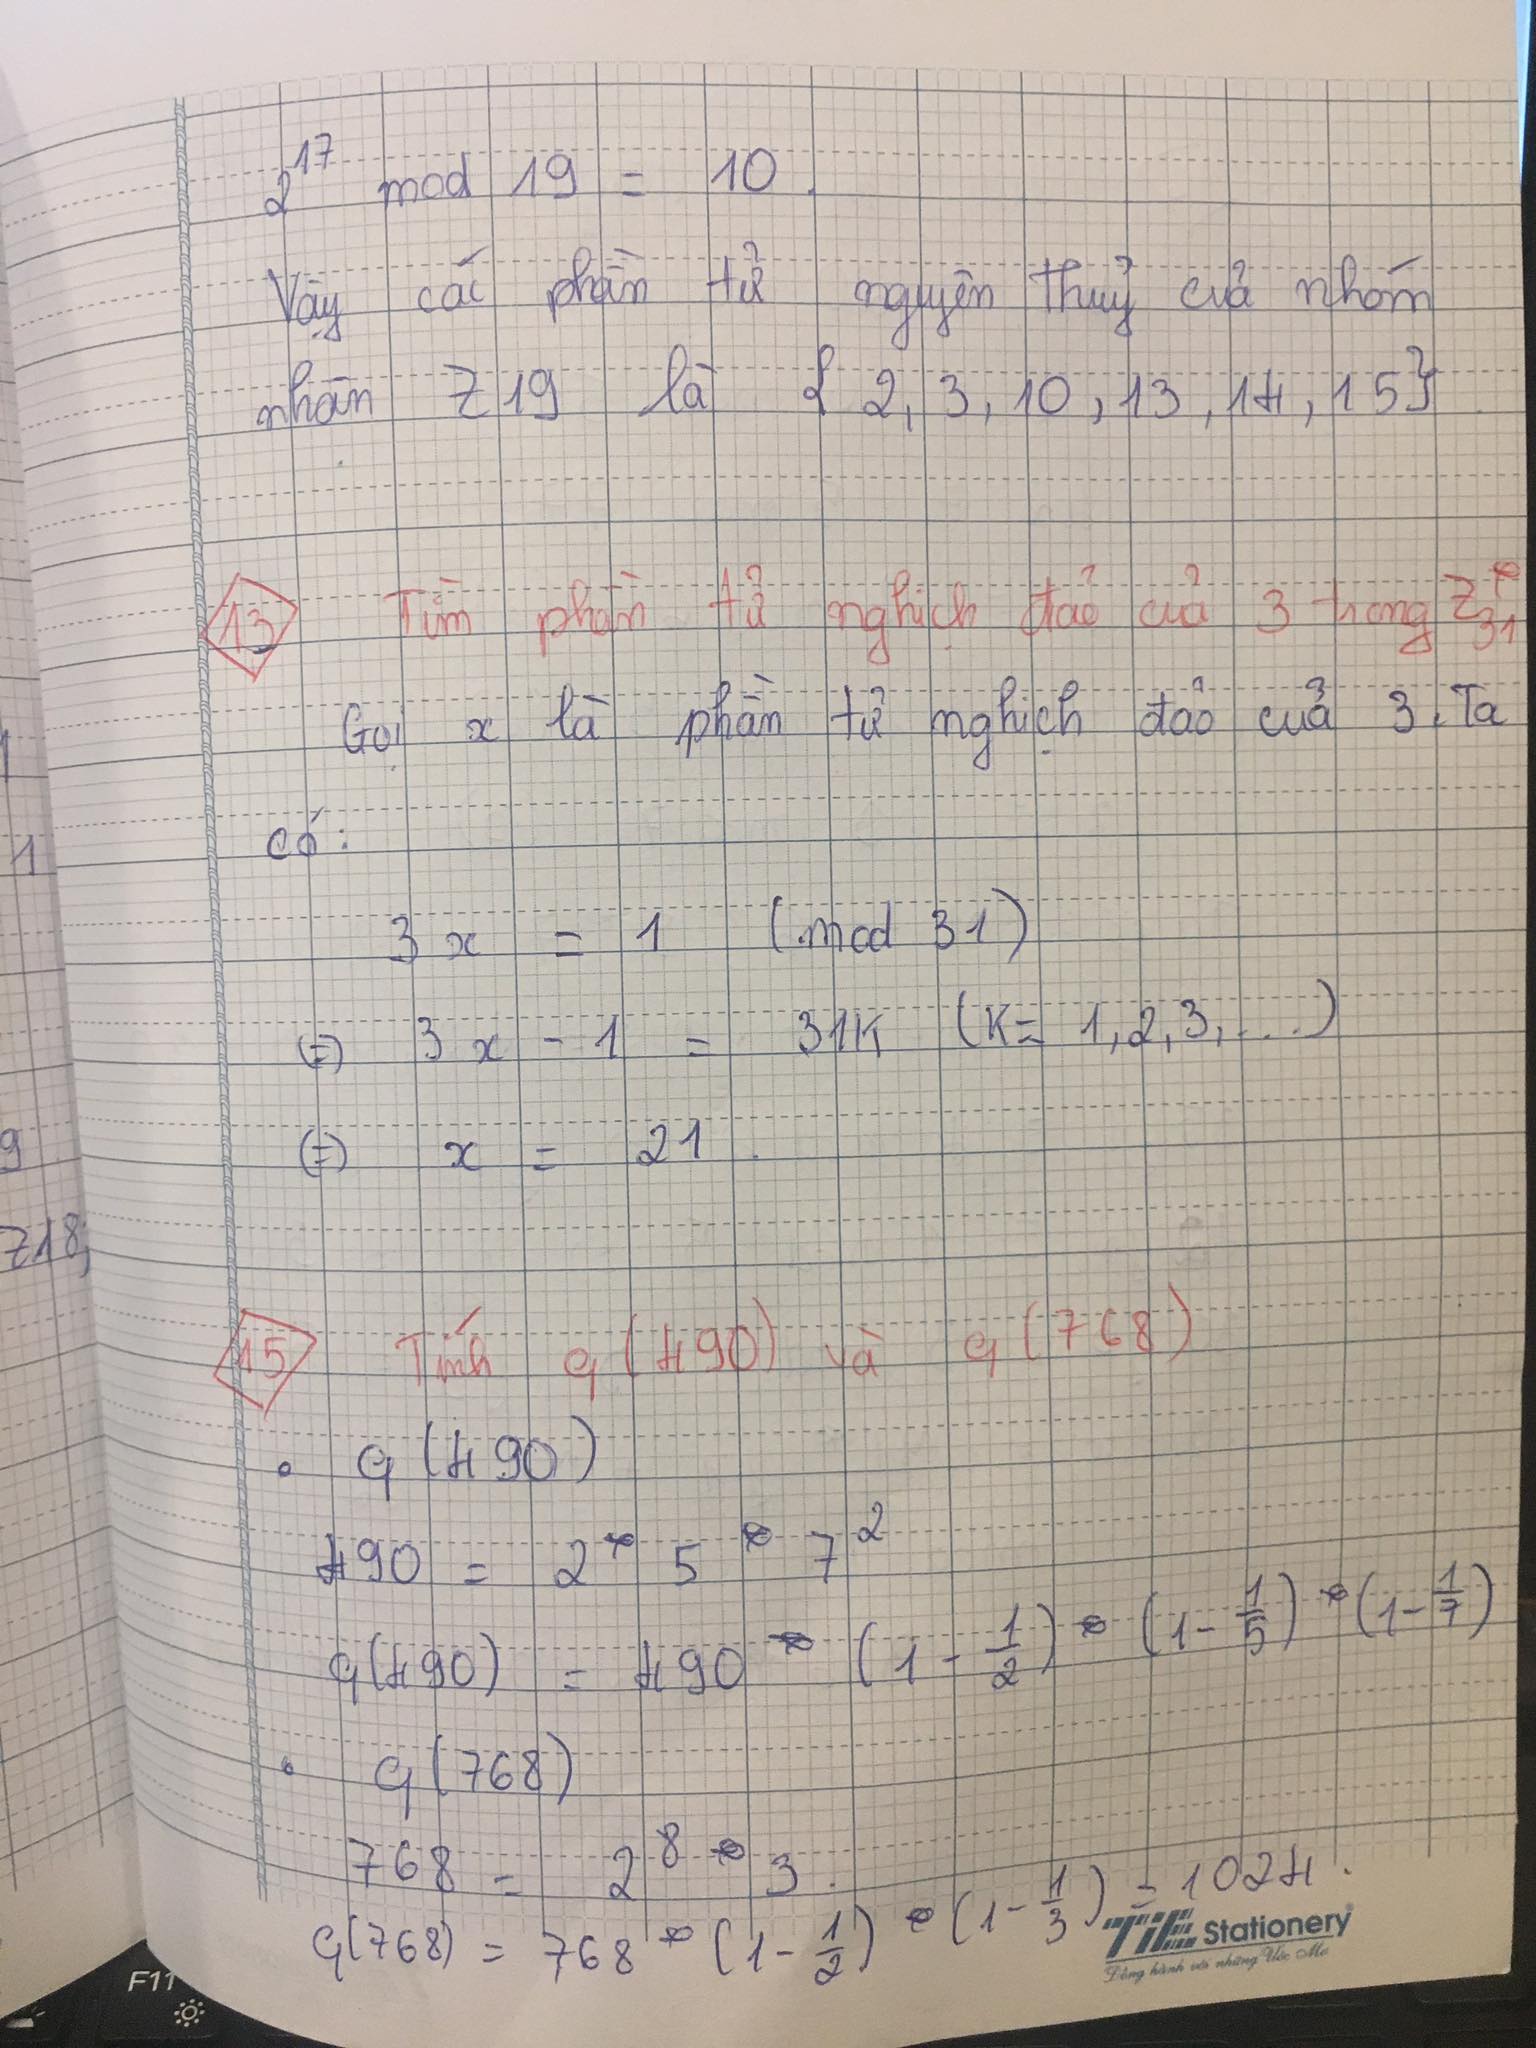 2^17 mod 19 = 10.
Vậy các phần tử nguyên thuỷ của nhóm
nhân Z19 là { 2, 3, 10, 13, 14, 15}
13 Tìm phần tử nghịch đảo của 3 trong Z*31
Gọi x là phần tử nghịch đảo của 3. Ta
1
có:
1
3x = 1 (mod 31)
(=) 3x - 1 = 31K (K= 1,2,3,....)
9
(=) x = 21.
Z18;
15 Tính φ(490) và φ(768)
• φ(490)
490 = 2 * 5 * 7^2
φ(490) = 490 * (1 - 1/2) * (1 - 1/5) * (1 - 1/7)
• φ(768)
768 = 2^8 * 3.
φ(768) = 768 * (1 - 1/2) * (1 - 1/3) = 1024.
TiE Stationery
Đồng hành với những Ước Mơ
F11